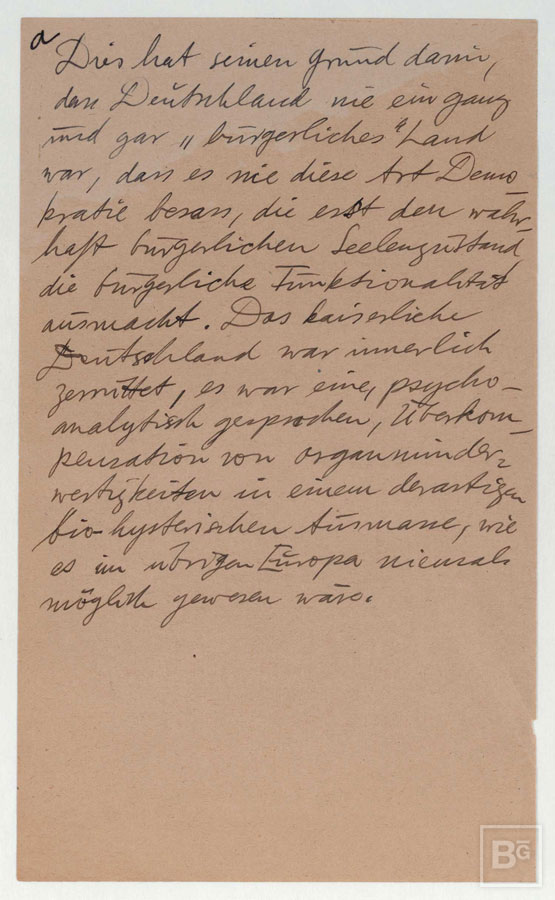 a
Dies hat seinen Grund darin,
dass Deutschland nie ein ganz
und gar „bürgerliches“ Land
war, dass es nie diese Art Demo
kratie besass, die erst den wahr-
haft bürgerlichen Seelenzustand,
die bürgerliche Funktionalität
ausmacht. Das kaiserliche
Deutschland war innerlich
zerrüttet, es war eine, psycho-
analytisch gesprochen, Überkom-
pensation von Organminder-
wertigkeiten in einem derartigen
bio-hysterischen Ausmasse, wie
es im übrigen Europa niemals
möglich gewesen wäre.
BG